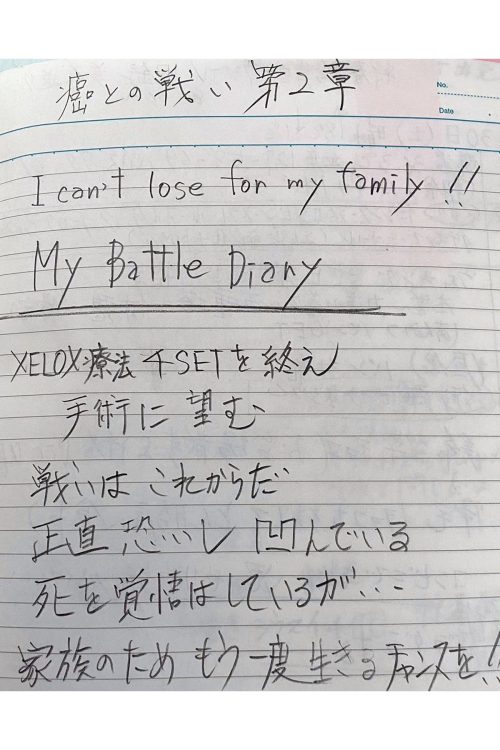 癌との戦い 第2章
No.
Date
I can't lose for my family !!
My Battle Diary
XELOX療法 4SETを終え
手術に望む
戦いは これからだ
正直 恐いし 凹んでいる
死を覚悟はしているが...
家族のため もう一度生きるチャンスを!!